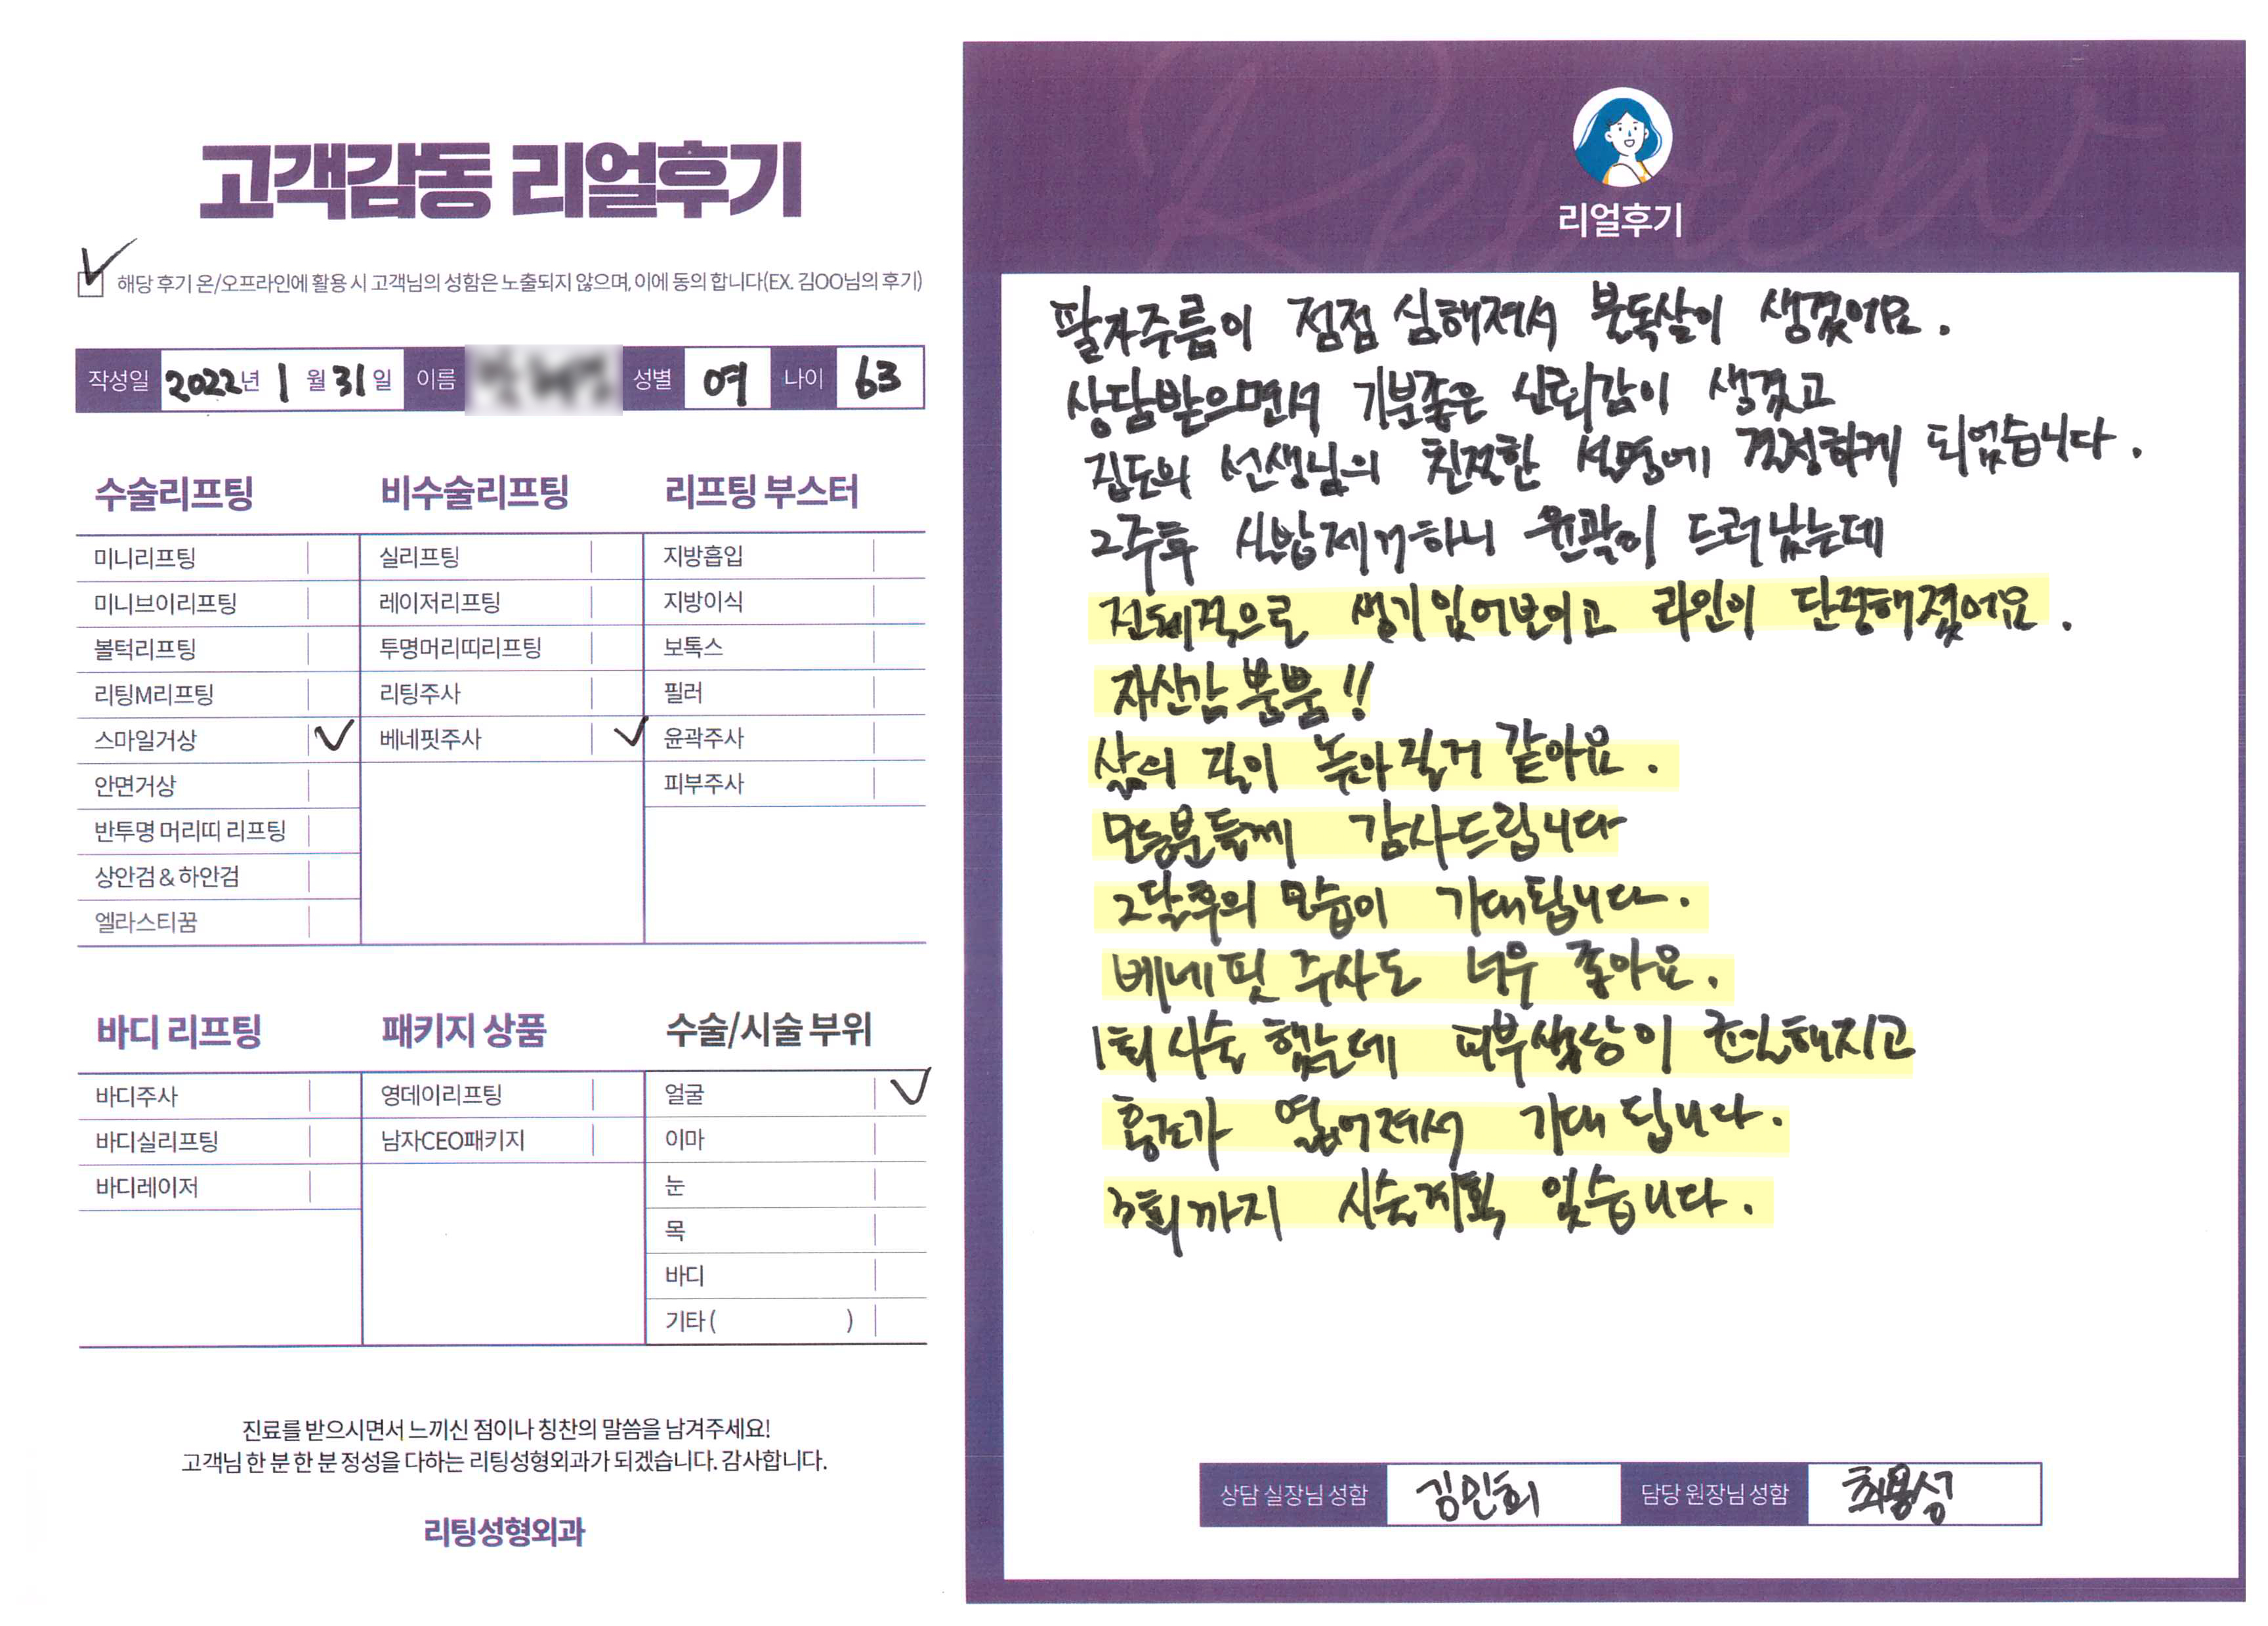 고객감동 리얼후기
해당 후기 온/오프라인에 활용 시 고객님의 성함은 노출되지 않으며, 이에 동의 합니다(EX. 김OO님의 후기)
작성일 2022년 1월 31일 이름 성별 여 나이 63
수술리프팅
미니리프팅
미니브이리프팅
볼턱리프팅
리팅M리프팅
스마일거상
안면거상
반투명 머리띠 리프팅
상안검 & 하안검
엘라스티꿈
비수술리프팅
실리프팅
레이저리프팅
투명머리띠리프팅
리팅주사
베네핏주사
리프팅 부스터
지방흡입
지방이식
보톡스
필러
윤곽주사
피부주사
바디 리프팅
바디주사
바디실리프팅
바디레이저
패키지 상품
영데이리프팅
남자CEO패키지
수술/시술 부위
얼굴
이마
눈
목
바디
기타 ( )
진료를 받으시면서 느끼신 점이나 칭찬의 말씀을 남겨주세요!
고객님 한 분 한 분 정성을 다하는 리팅성형외과가 되겠습니다. 감사합니다.
리팅성형외과
Review
리얼후기
팔자주름이 점점 심해져서 분독살이 생겼어요.
상담받으면서 기분좋은 신뢰감이 생겼고
집도의 선생님의 친절한 설명에 결정하게 되었습니다.
2주후 실밥제거하니 윤곽이 드러났는데
전체적으로 생기있어보이고 라인이 단정해졌어요.
자신감 뿜뿜!!
삶의 질이 높아질거 같아요.
모든분들께 감사드립니다
2달후의 모습이 기대됩니다.
베네핏 주사도 너무 좋아요.
1회 시술 했는데 피부색상이 균일해지고
홍조가 엷어져서 기대 됩니다.
3회까지 시술계획 있습니다.
상담 실장님 성함 김민희 담당 원장님 성함 최용성